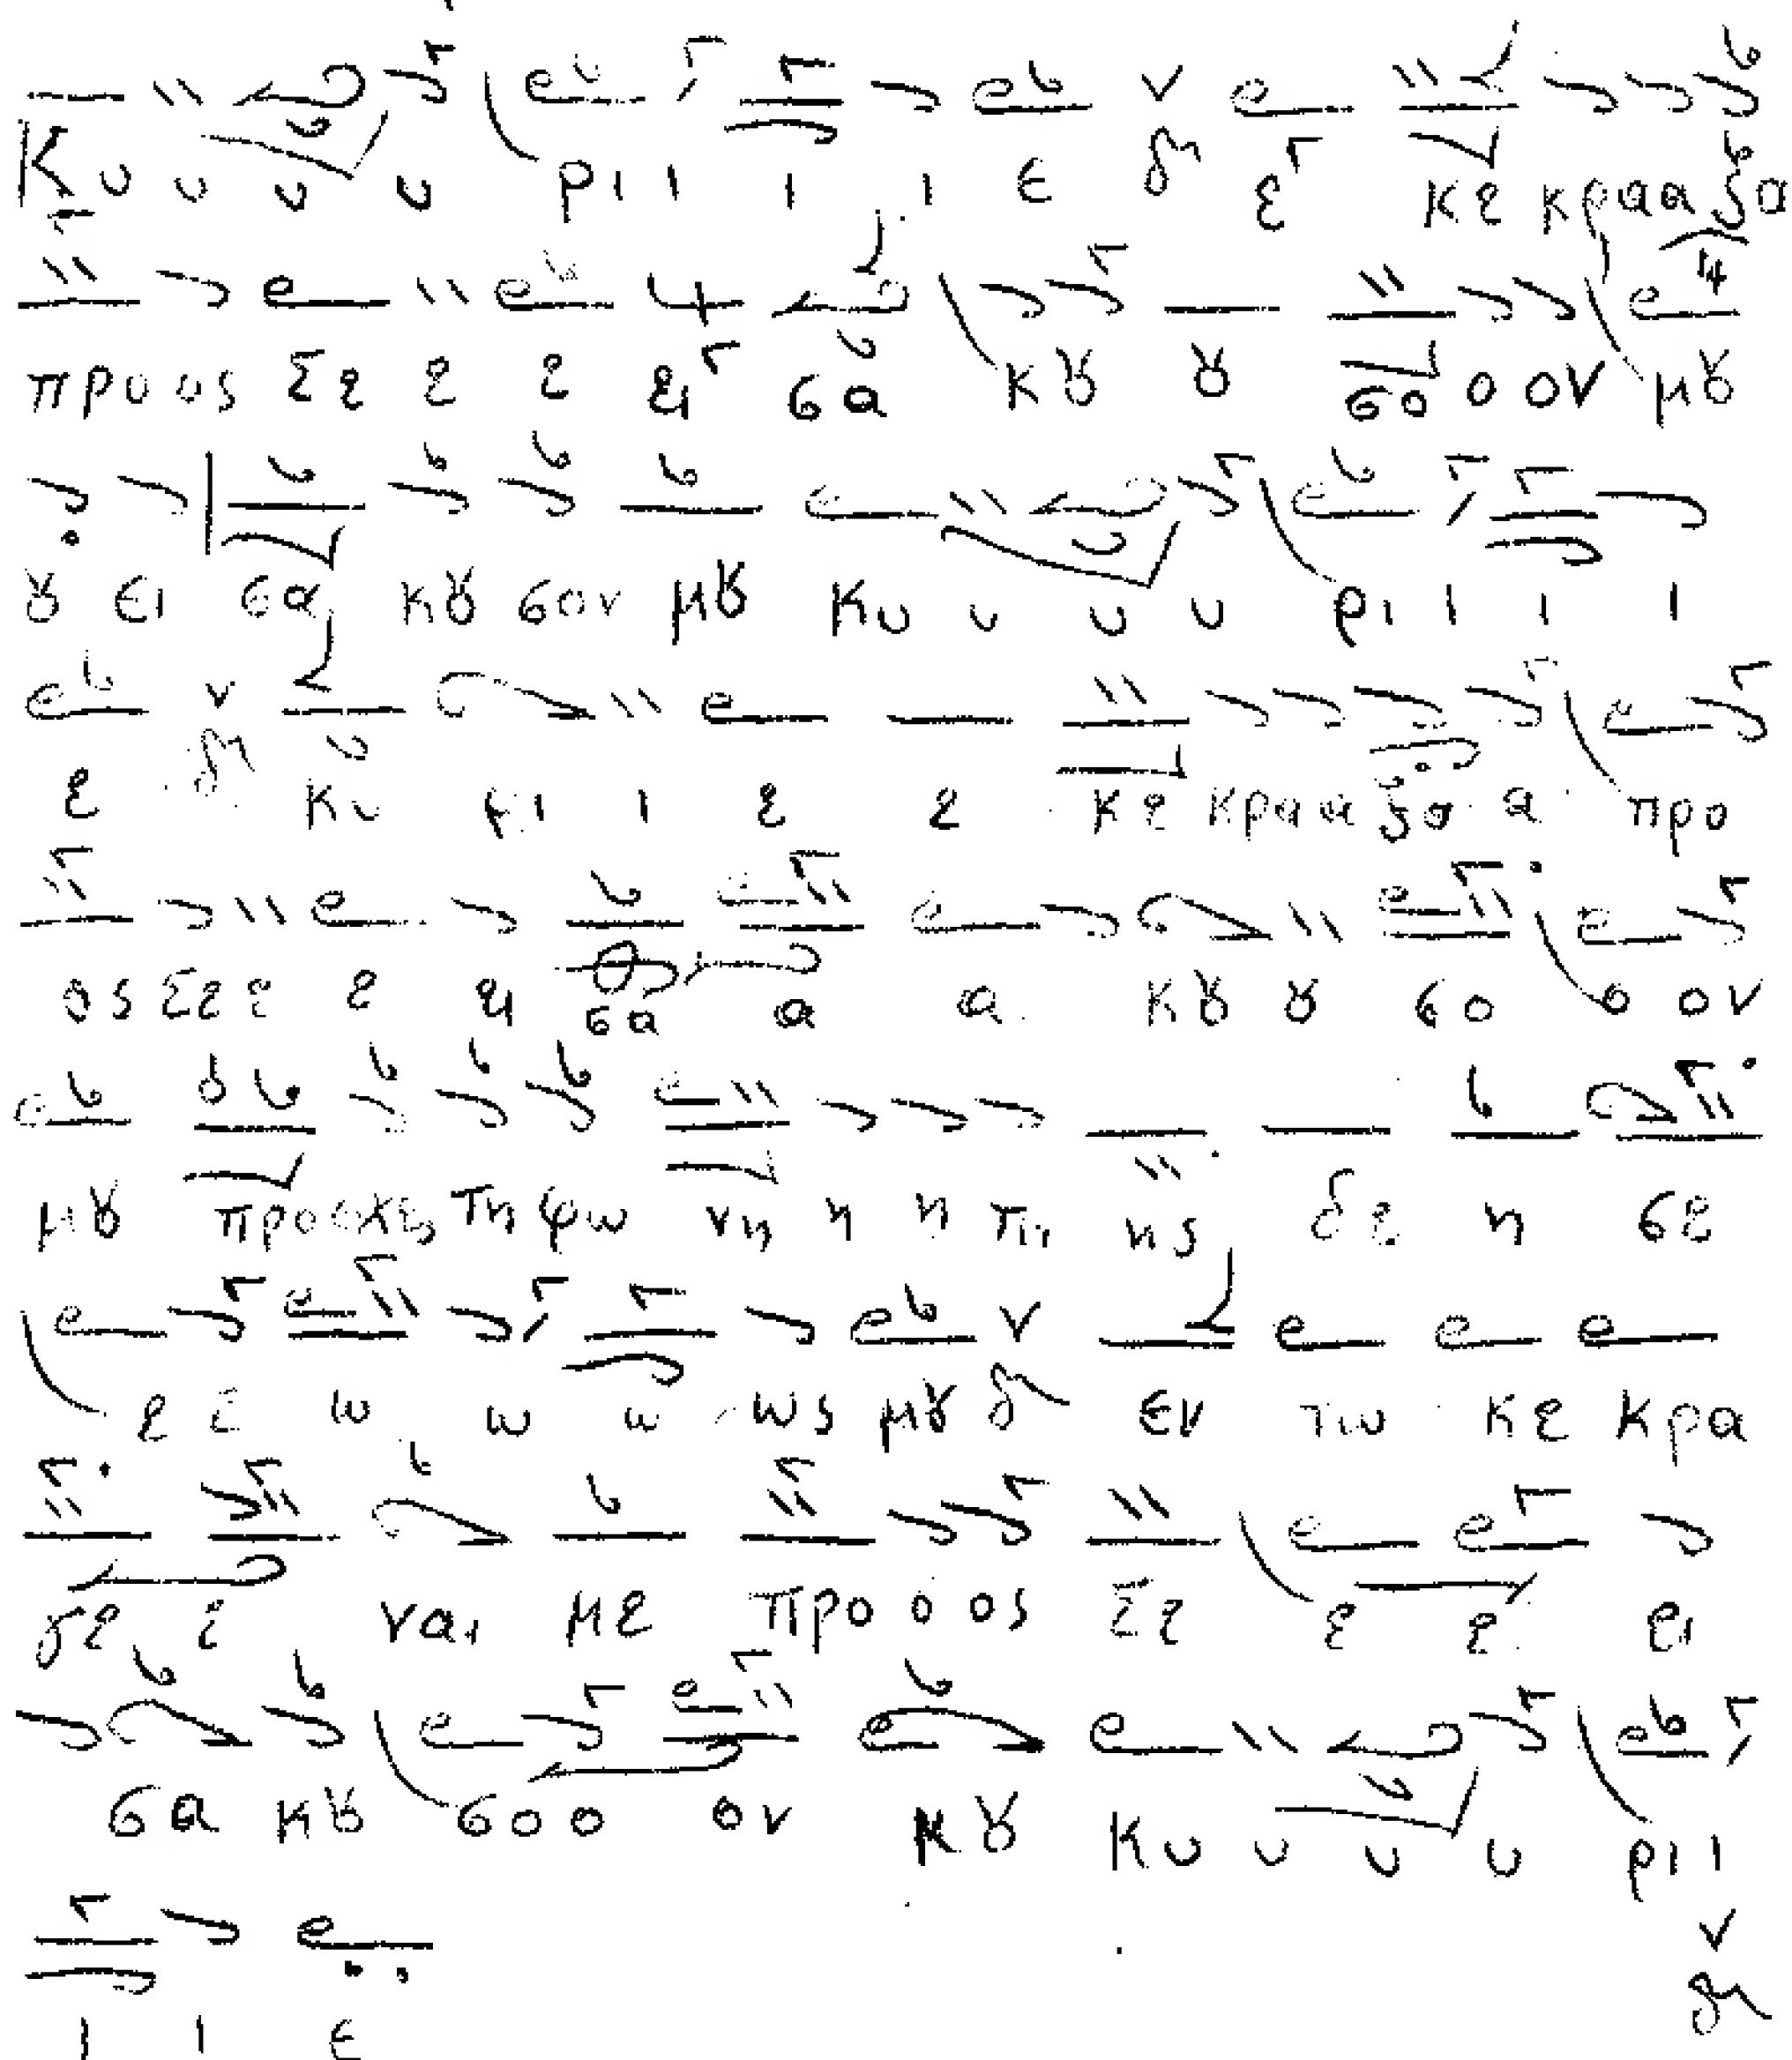 Κυ υ υ υ ρι ι ι ι ε ε κε κρα α ξα
προ ος Σε ε ε ει σα κȣ ȣ σο ο ον μȣ
ȣ ει σα κȣ σον μȣ Κυ υ υ υ ρι ι ι ι
ε Κυ ρι ι ε ε κε κρα α ξα α προ
ος Σε ε ε ε ει σα α α κȣ ȣ σο ο ον
μȣ προσχες τη φω νη η η τη ης δε η σε
ε ε ω ω ω ως μȣ εν τω κε κρα
γε ε ναι με προ ο ος Σε ε ε ει
σα κȣ σο ο ον μȣ Κυ υ υ υ ρι ι
ι ι ε